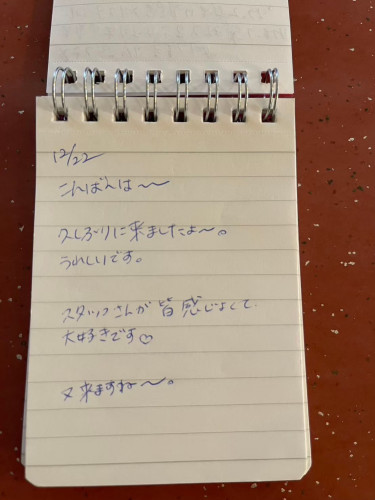 12/22
こんばんは〜
久しぶりに来ましたよ〜。
うれしいです。
スタッフさんが皆感じよくて
大好きです♡
又来ますね〜。